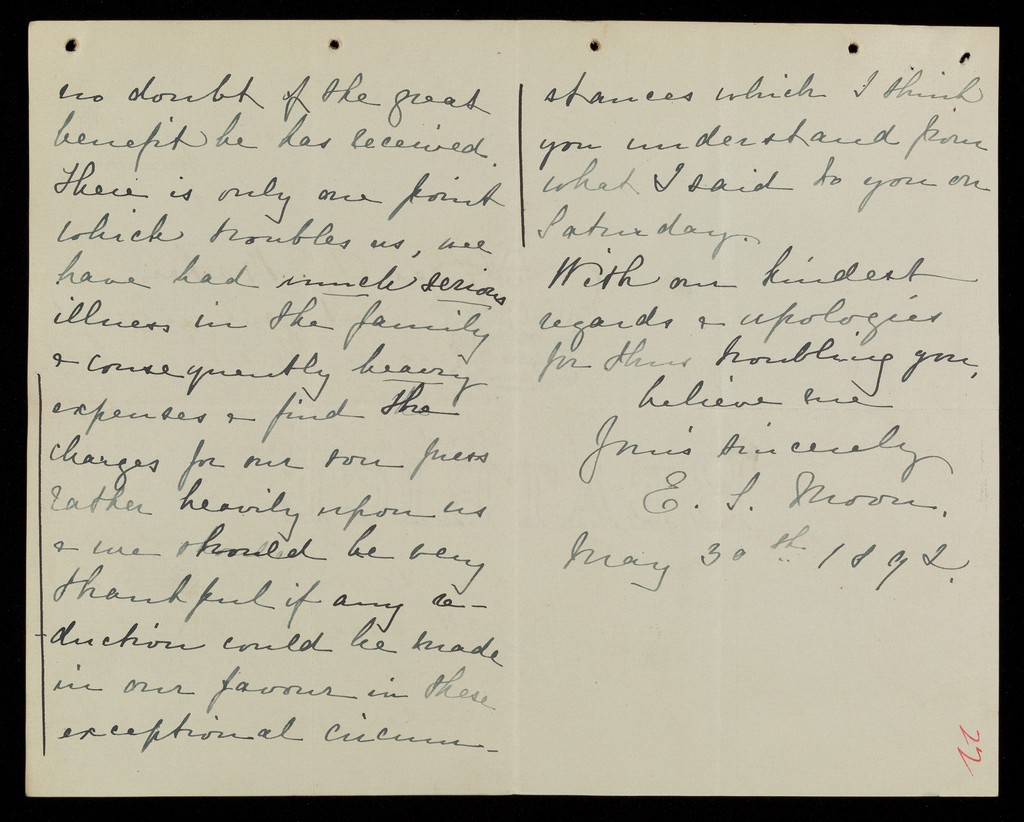 no doubt of the great
benefit he has received.
There is only one point
which troubles us, we
have had much serious
illness in the family
& consequently heavy
expenses & find the
charges for our son press
rather heavily upon us
& we should be very
thankful if any re-
duction could be made
in our favour in these
exceptional circum-
stances which I think
you understand from
what I said to you on
Saturday.
With our kindest
regards & apologies
for thus troubling you,
believe me
Yours sincerely
E. S. Moon.
May 30th 1892.
22